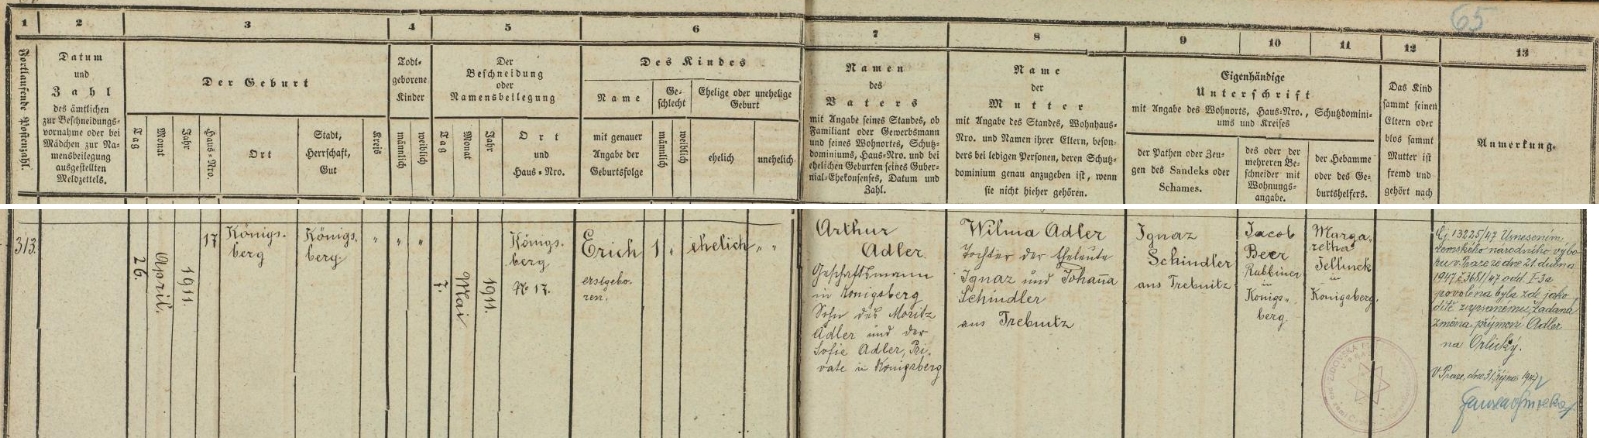 65
1
2
3
4
5
6
7
8
9
10
11
12
13
Fortlaufende Postenzahl.
Datum
und
Zahl
des ämtlichen
zur Beschneidungs-
vornahme oder bei
Mädchen zur Na-
mensbeilegung
ausgestellten
Meldzettels.
Der Geburt
Tag
Monat
Jahr
Haus-Nro.
Ort
Stadt,
Herrschaft,
Gut
Kreis
Todt-
geborene
Kinder
männlich
weiblich
Der
Beschneidung
oder
Namensbeilegung
Tag
Monat
Jahr
Ort
und
Haus-Nro.
Des Kindes
Name
mit genauer
Angabe der
Geburtsfolge
Ge-
schlecht
männlich
weiblich
Ehelige oder unehelige
Geburt
ehelich
unehelich
Namen
des
Vaters
mit Angabe seines Standes, ob
Familiant oder Gewerbsmann
und seines Wohnortes, Schutz-
dominiums, Haus-Nro. und bei
ehelichen Geburten seines Guber-
nial-Ehekonsenses, Datum und
Zahl.
Name
der
Mutter
mit Angabe des Standes, Wohnhaus-
Nro. und Namen ihrer Eltern, beson-
ders bei ledigen Personen, deren Schutz-
dominium genau anzugeben ist, wenn
sie nicht hieher gehören.
Eigenhändige
Unterschrift
mit Angabe des Wohnorts, Haus-Nro., Schutzdomini-
ums und Kreises
der Pathen oder Zeu-
gen des Sandeks oder
Schames.
des oder der
mehreren Be-
schneider mit
Wohnungs-
angabe.
der Hebamme
oder des Ge-
burtshelfers.
Das Kind
sammt seinen
Eltern oder
blos sammt
Mutter ist
fremd und
gehört nach
Anmerkung.
313.
26.
April
1911.
17
Königs-
berg
Königs-
berg
" " "
7.
Mai
1911.
Königs-
berg
No 17.
Erich
erstgebo-
ren.
1
"
ehelich
" "
Arthur
Adler
Geschäftsmann
in Königsberg
Sohn des Moritz
Adler und der
Sofie Adler, Pri-
vate in Königsberg
Wilma Adler
Tochter der Eheleute
Ignaz und Johanna
Schindler
aus Trebnitz
Ignaz
Schindler
aus Trebnitz
Jacob
Beer
Rabbiner
in
Königs-
berg.
Marga-
retha
Jellinek
in
Königsberg.
Čj. 13225/47 Usnesením
zemského národního výbo-
ru v Praze ze dne 21. dubna
1947 č. odd.
povolena byla zde jako
dítě zapsanému, žádaná
změna příjmení Adler
na Orlický.
V Praze, dne 31. října 1947